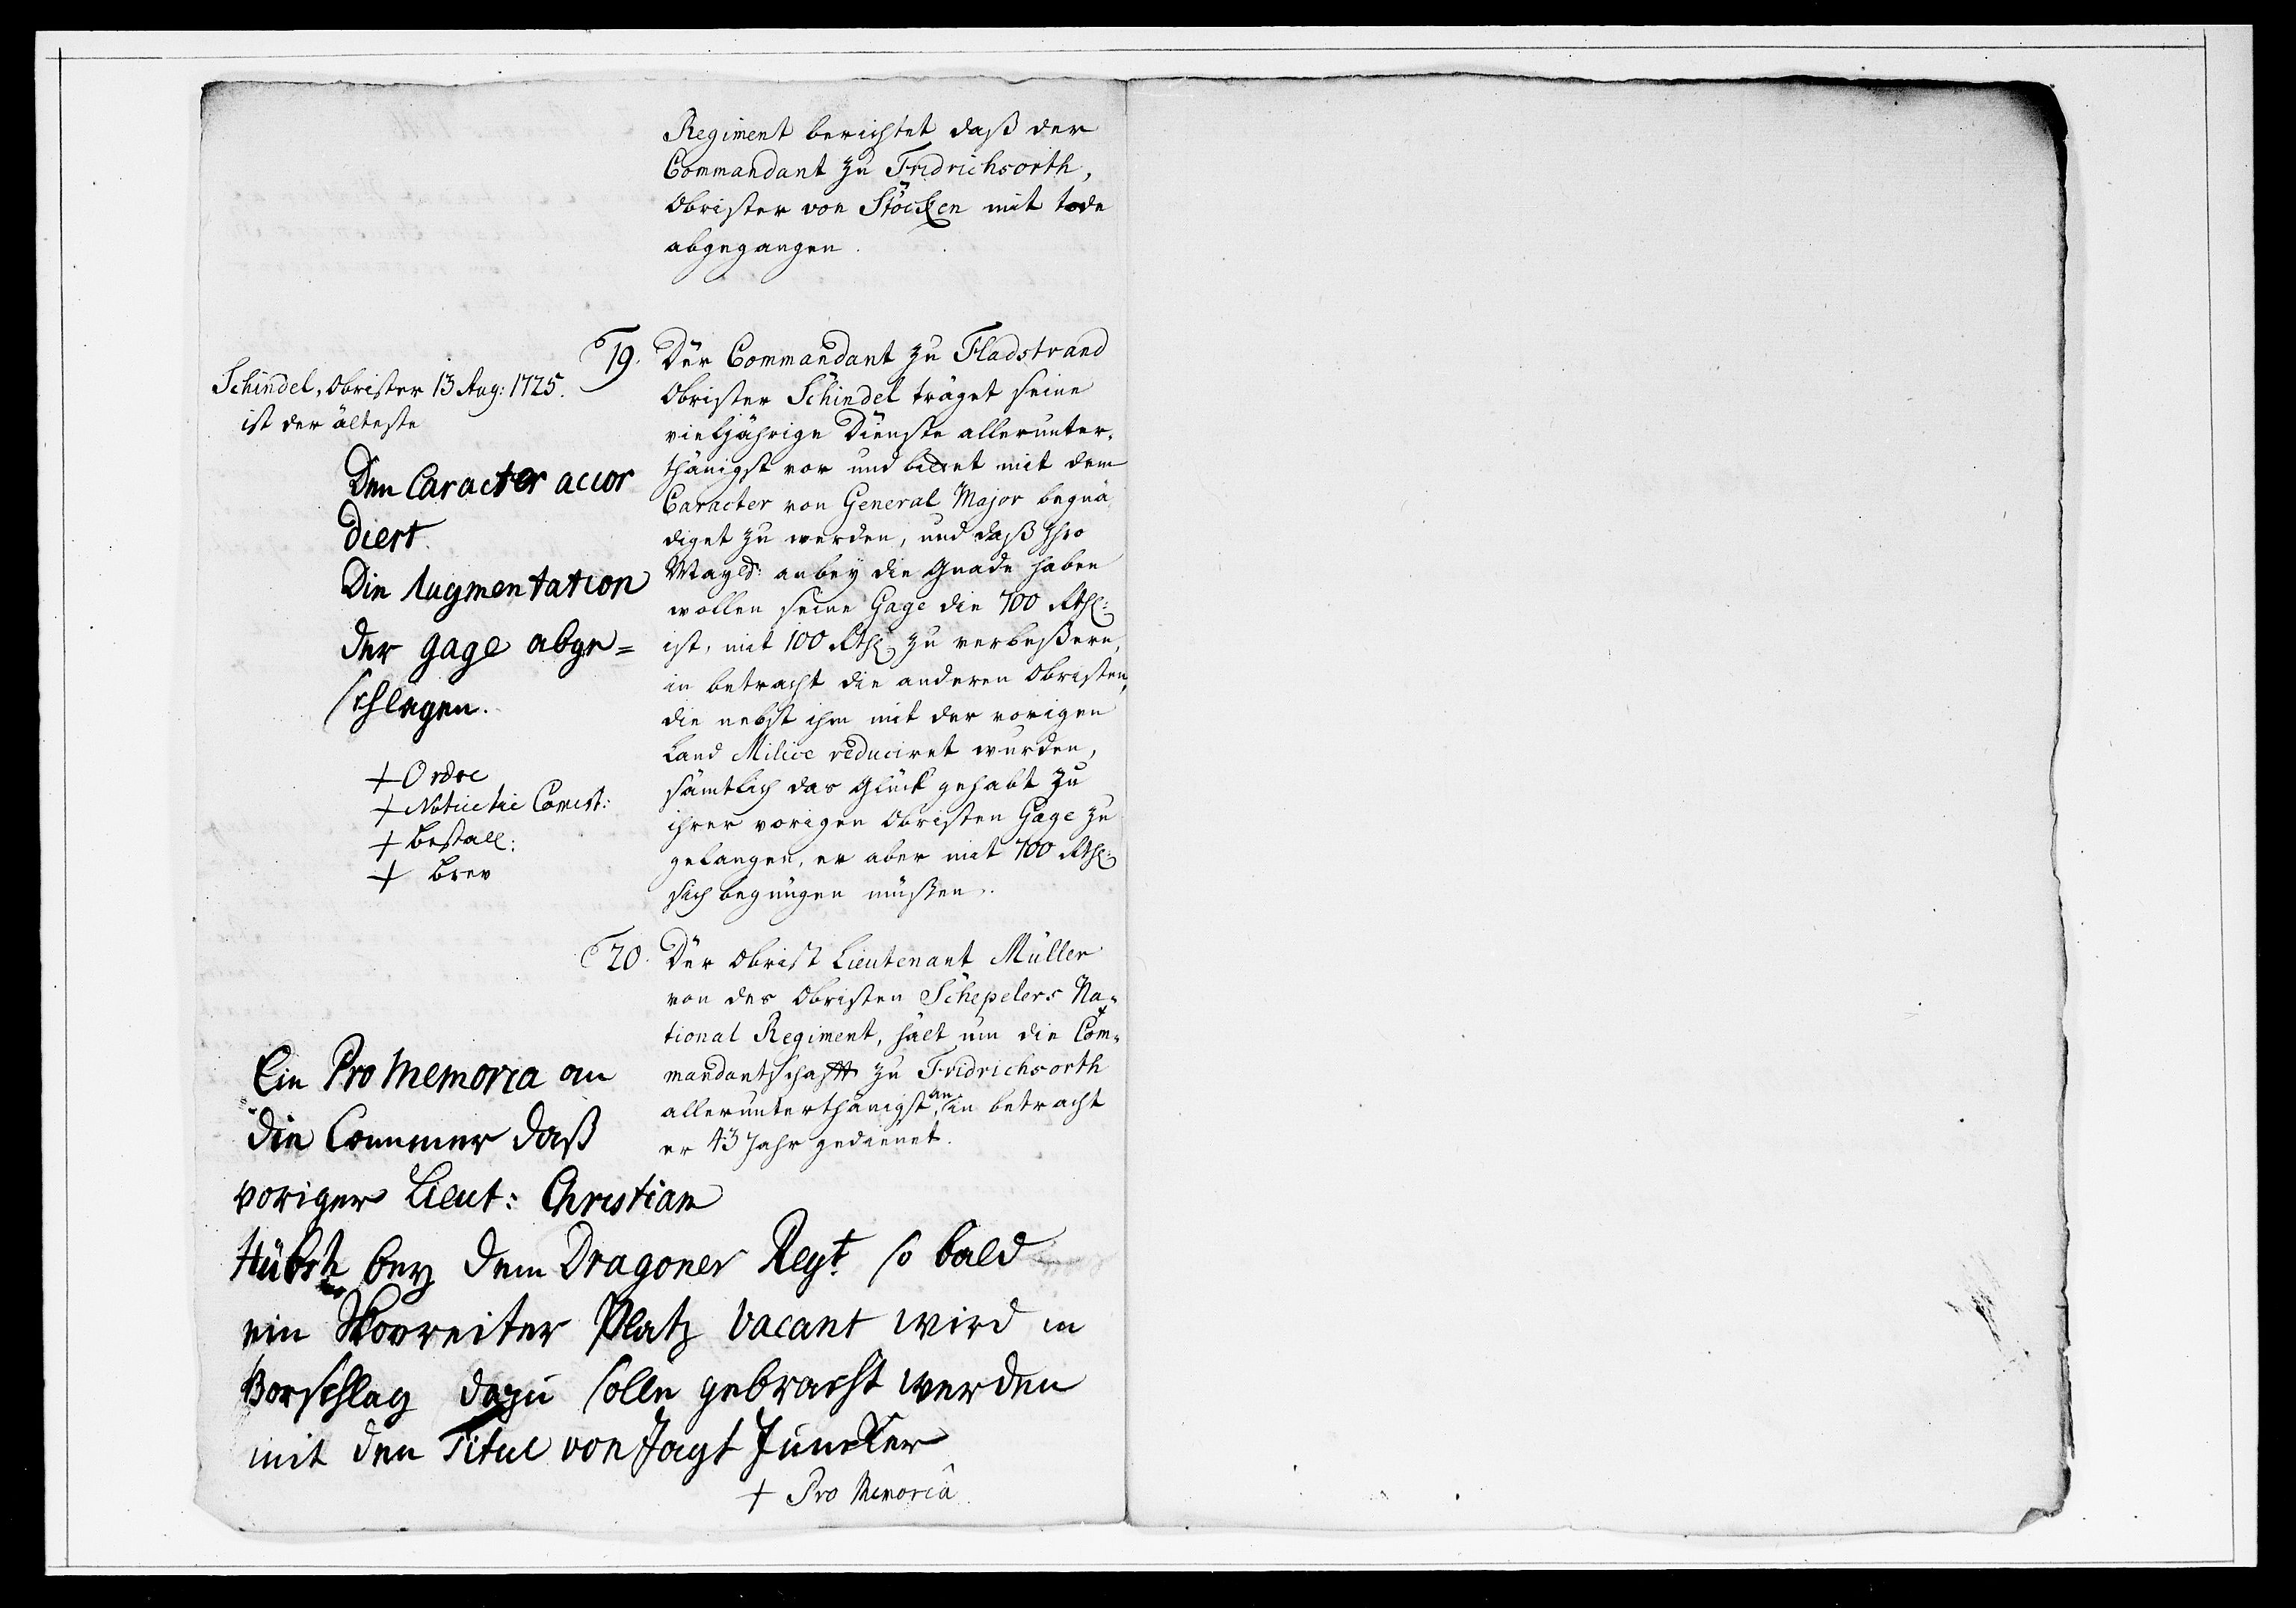 Regiment berichtet daß der
Commandant zu Fridrichsorth,
Obrister von Stöcken mit tode
abgegangen.
19. Der Commandant zu Fladstrand
Obrister Schindel träget seine
vieljährige Dienste allerunter,
thänigst vor und bittet mit dem
Caracter von General Major begnä
diget zu werden, und daß Ihro
Mayts: anbey die Gnade haben
wollen seine Gage die 700 Rthl:
ist, mit 100 Rthl: zu verbeßern,
in betracht die anderen Obristen,
die nebst ihm mit der vorigen
Land Milice reduciret wurden,
sämtlich das Glück gehabt zu
ihrer vorigen Obristen Gage zu
gelangen, er aber mit 700 Rthl:
sich begnügen müßen.
Schindel, Obrister 13 Aug: 1725.
ist der älteste
Den Caracter accor
diert.
Die Augmentation
der gage abge=
schlagen.
+ Ordre
+ Notice
+ Bestall:
+ Brev
20. Der Obrist Lieutenant Müller
von des Obristen Schepelers Na,,
tional Regiment, hält um die Com,,
mandantschafft zu Fridrichsorth
allerunterthänigst an, in betracht
er 43 Jahr gedienet.
Ein Pro Memoria an
die Cammer daß
voriger Lieut: Christian
Hübsh bey dem Dragoner Regt. so bald
ein Skovreiter Platz vacant wird in
Vorschlag dazu solle gebracht werden
mit den Titul von Jagt Juncker
+ Pro Memoria